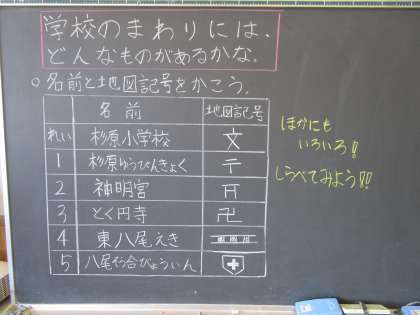 学校のまわりには、
どんなものがあるかな。
○名前と地図記号をかこう。
名前 地図記号
れい 杉原小学校 文
1 杉原ゆうびんきょく 〒
2 神明宮 ⛩
3 とく円寺 卍
4 東八尾えき
5 八尾そう合びょういん
ほかにも
いろいろ!!
しらべてみよう!!